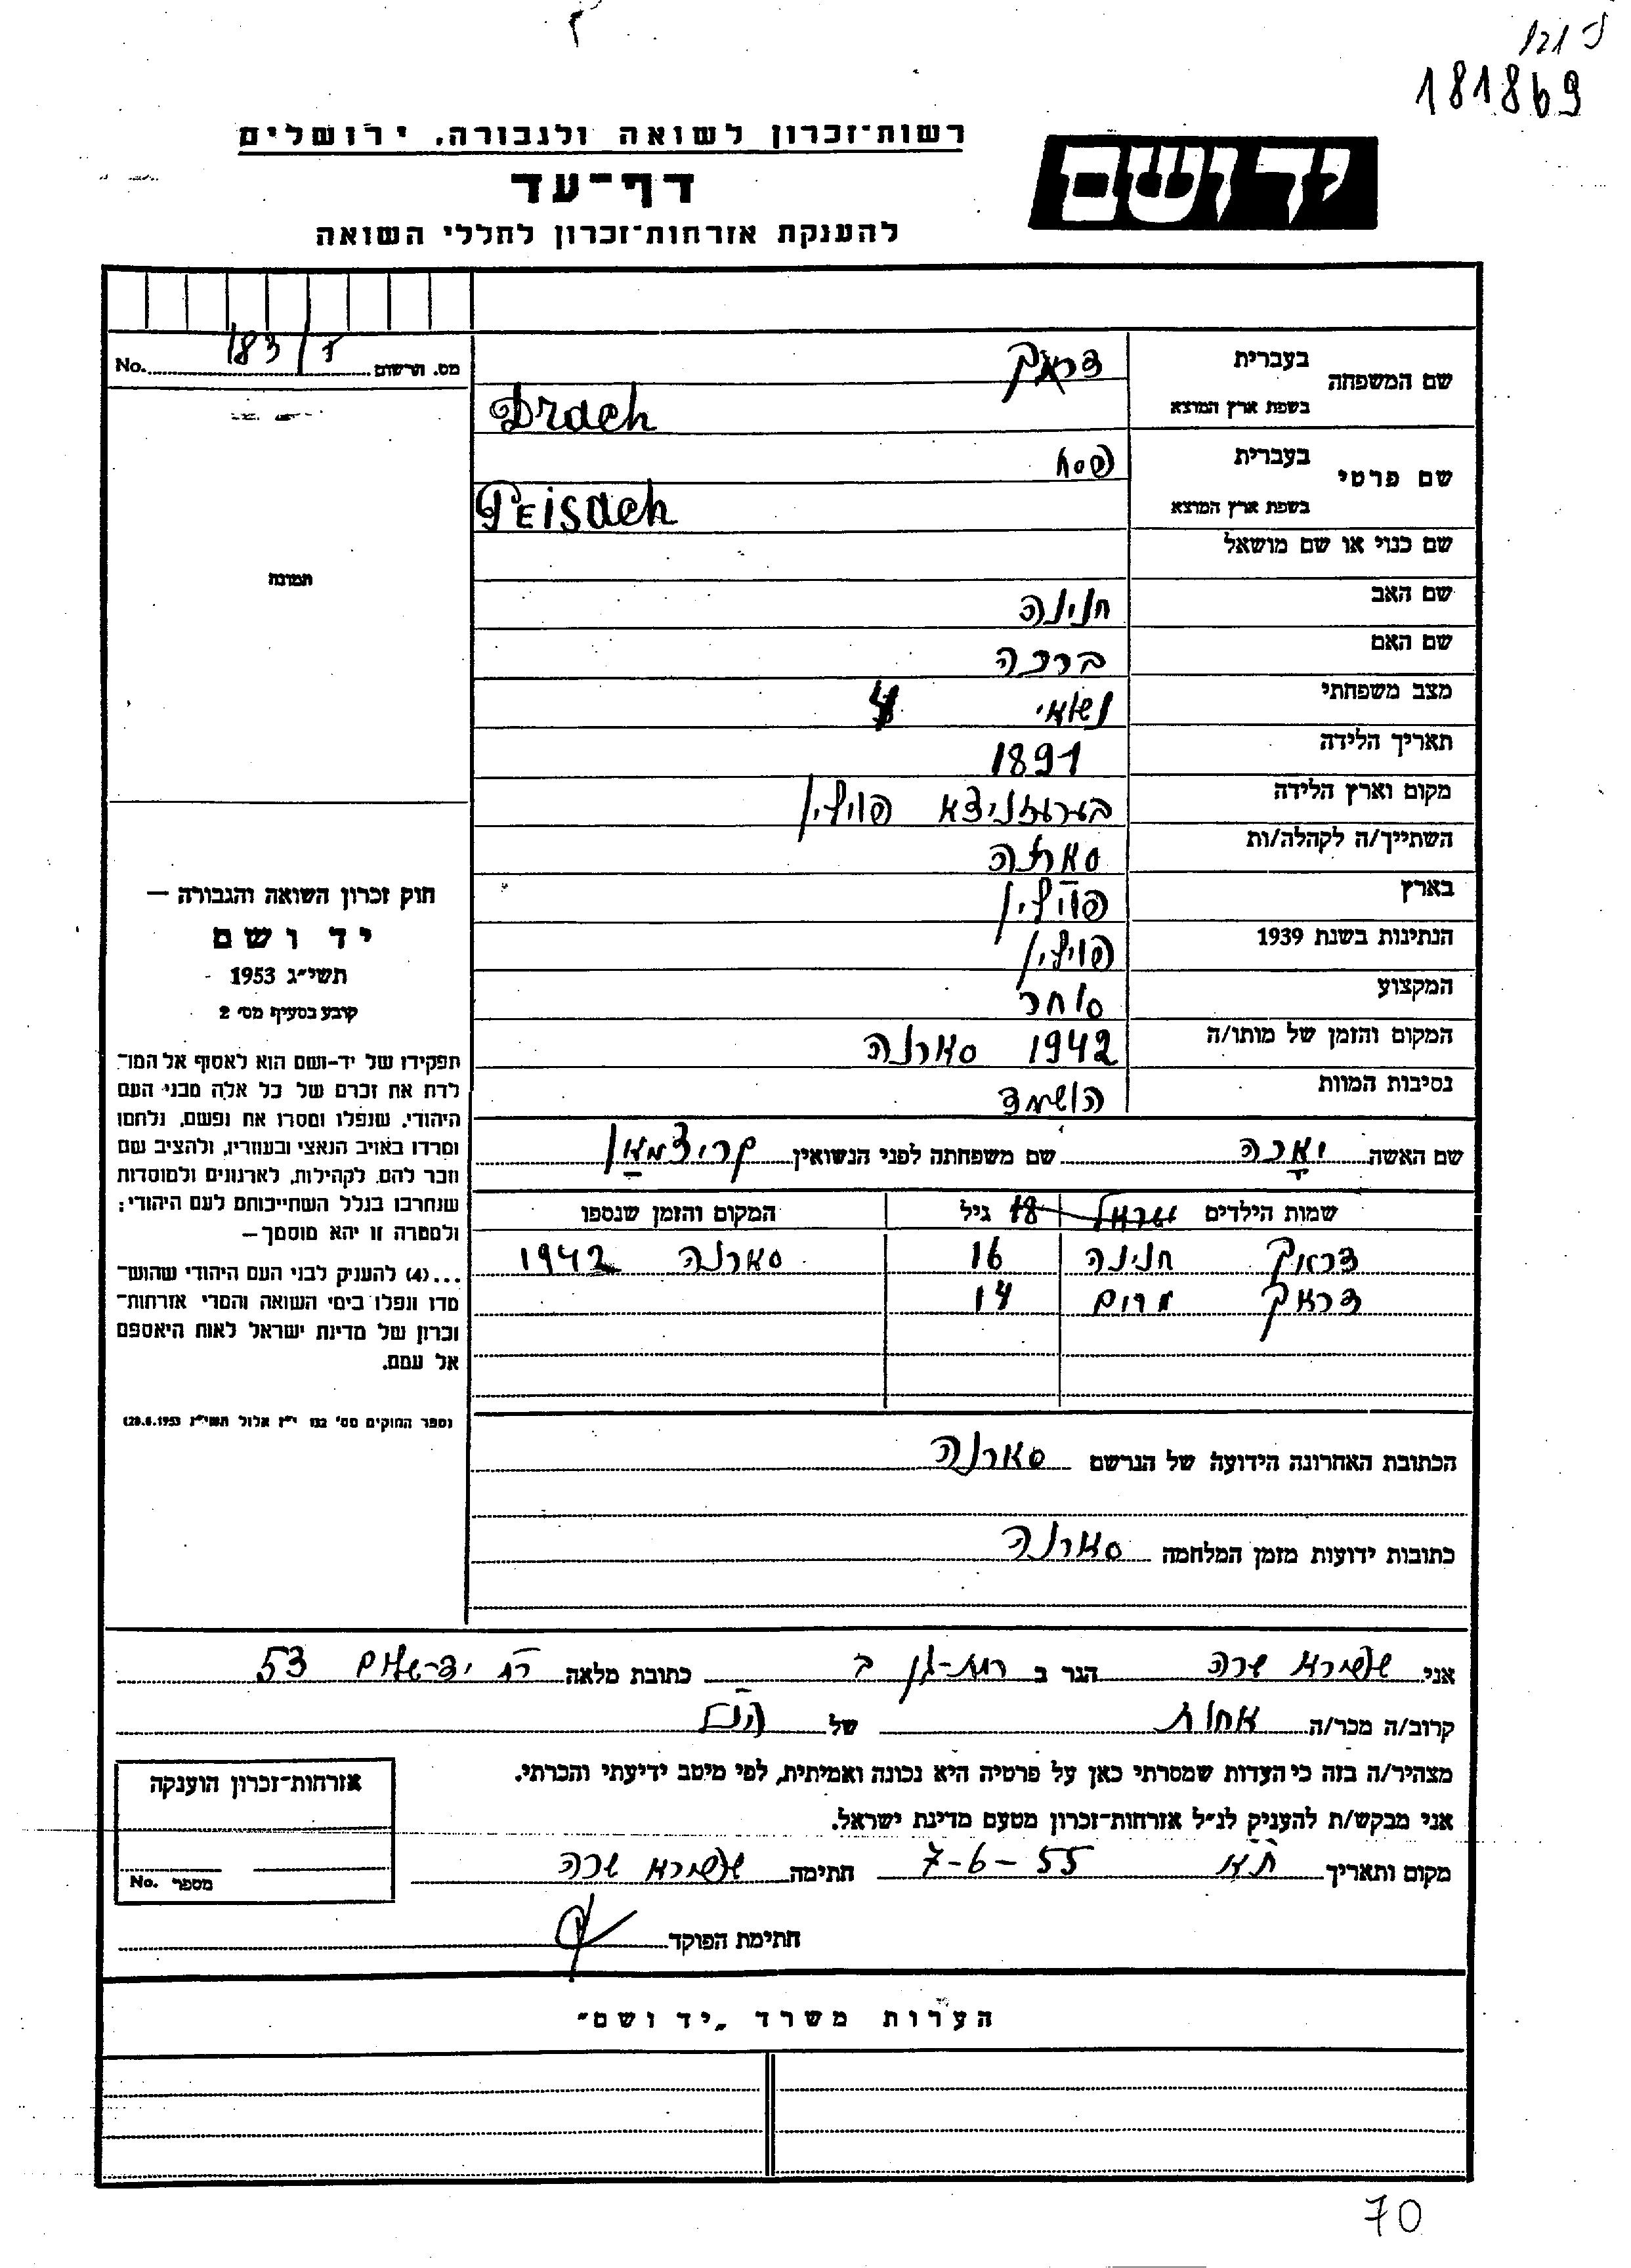 181869
רשות־זכרון לשואה ולגבורה, ירושלים
יד ושם
דף־עד
להענקת אזרחות־זכרון לחללי השואה
מס. הרשום No.
שם המשפחה בעברית דראך
בשפת ארץ המוצא Drach
שם פרטי בעברית פסח
בשפת ארץ המוצא Peisach
שם כנוי או שם מושאל
תמונה
שם האב חנינה
שם האם ברכה
מצב משפחתי נשוי 4
תאריך הלידה 1891
מקום וארץ הלידה פולין
השתייך/ה לקהלה/ות סארנה
בארץ פולין
הנתינות בשנת 1939 פולין
המקצוע סוחר
המקום והזמן של מותו/ה 1942 סארנה
נסיבות המוות הושמד
חוק זכרון השואה והגבורה —
יד ושם
תשי״ג 1953
קובע בסעיף מס׳ 2
תפקידו של יד-ושם הוא לאסוף אל המו־
לדת את זכרם של כל אלה מבני העם
היהודי, שנפלו ומסרו את נפשם, נלחמו
ומרדו באויב הנאצי ובעוזריו, ולהציב שם
וזכר להם, לקהילות, לארגונים ולמוסדות
שנחרבו בגלל השתייכותם לעם היהודי;
ולמטרה זו יהא מוסמך —
...(4) להעניק לבני העם היהודי שהוש־
מדו ונפלו בימי השואה והמרי אזרחות־
זכרון של מדינת ישראל לאות היאספם
אל עמם.
(ספר החוקים מס׳ 132 י״ז אלול תשי״ג 28.8.1953)
שם האשה שם משפחתה לפני הנשואין קריצמאן
שמות הילדים גיל 18 המקום והזמן שנספו
דראך חנינה 16 סארנה 1942
דראך מרים 14
הכתובת האחרונה הידועה של הנרשם סארנה
כתובות ידועות מזמן המלחמה סארנה
אני שפירא שרה הגר ב רמת-גן ב כתובת מלאה רח יד-שלום 53
קרוב/ה מכר/ה אחות של הנ״ל
מצהיר/ה בזה כי העדות שמסרתי כאן על פרטיה היא נכונה ואמיתית, לפי מיטב ידיעתי והכרתי.
אני מבקש/ת להעניק לנ״ל אזרחות־זכרון מטעם מדינת ישראל.
מקום ותאריך ת״א 7-6-55 חתימה שפירא שרה
חתימת הפוקד
אזרחות־זכרון הוענקה
מספר No.
הערות משרד „יד ושם״
70